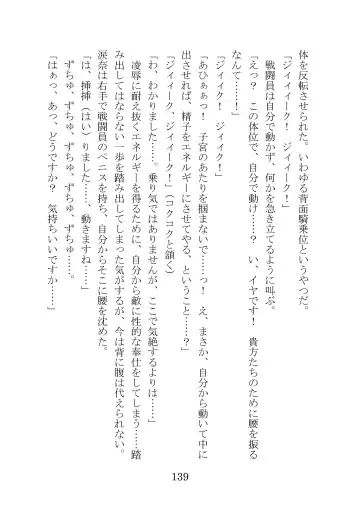 体を反転させられた。いわゆる背面騎乗位というやつだ。
「ジィィイーク！　ジィイーク！」
　戦闘員は自分で動かず、何かを急き立てるように叫ぶ。
「えっ？　この体位で、自分で動け……？　い、イヤです！　貴方たちのために腰を振る
なんて……！」
「ジィィク！　ジィイーク！」
「あひぁぁっ！　子宮のあたりを掴まないで……っ！　え、まさか、自分から動いて中に
出させれば、精子をエネルギーにさせてやる、ということ……？」
「ジィイーク、ジィィーク！」（コクコクと頷く）
「わ、わかりました……。乗り気ではありませんが、ここで気絶するよりは……」
　凌辱に耐え抜くエネルギーを得るために、自分から敵に性的な奉仕をしてしまう……踏
み出してはならない一歩を踏み出してしまった気がするが、今は背に腹は代えられない。
　涙奈は右手で戦闘員のペニスを持ち、自分からそこに腰を沈めた。
「は、挿挿（はい）りました……、動きますね……」
　ずちゅ、ずちゅ、ずちゅ、ずちゅ……。
「はぁっ、あっ、どうですか？　気持ちいいですか……」
139